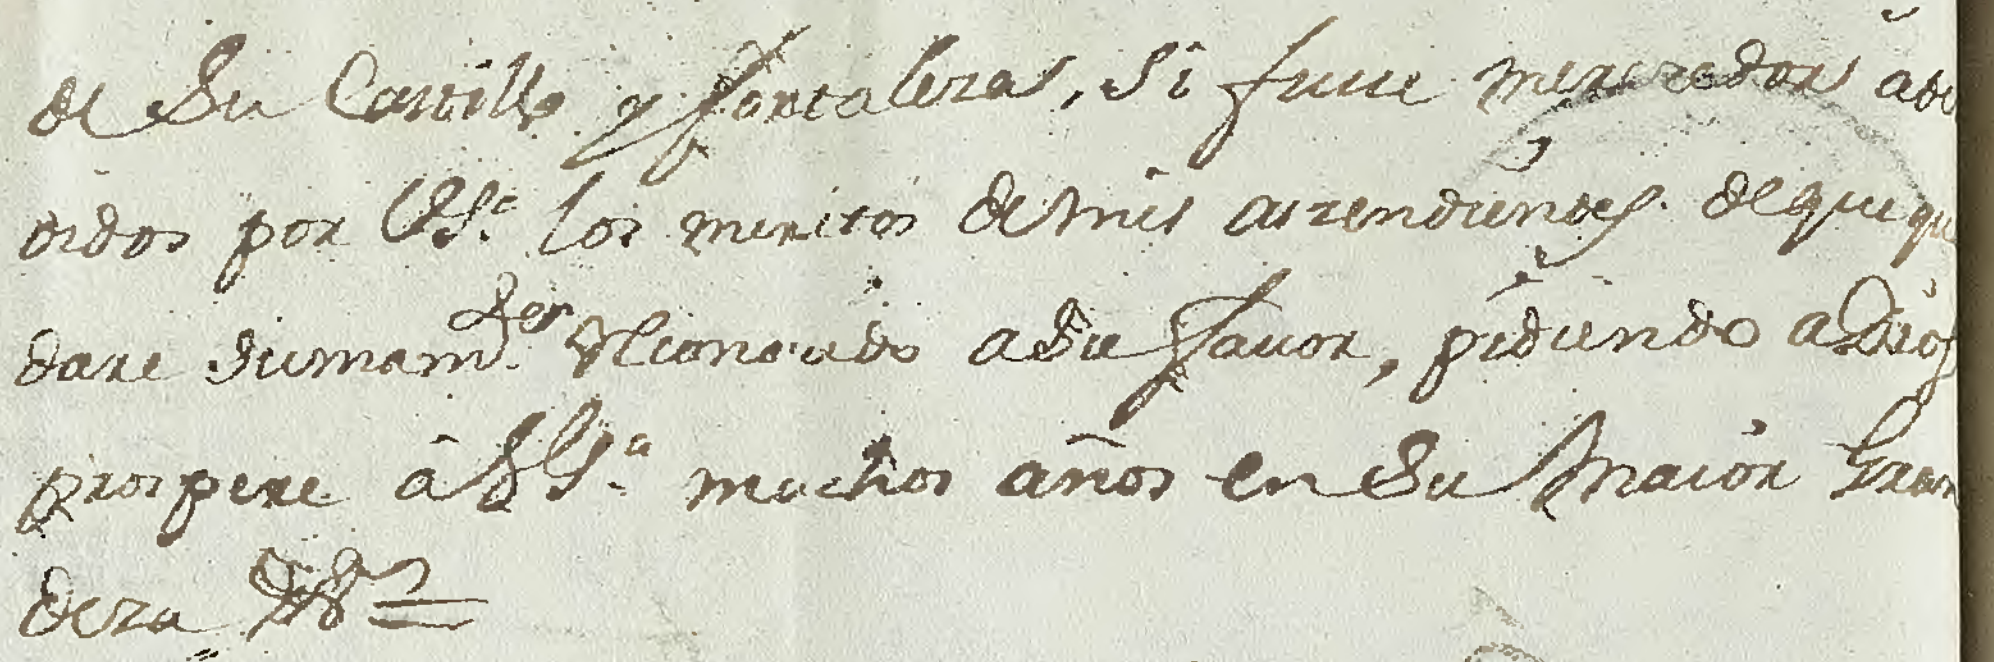 de Su Castillo y fortalezas, Si fuese merecedores ate
didos por VSª. los meritos de mis aszendientes. de que que
dare Sumamte. Reconocido a Su favor, pidiendo a Dios
prospere â VSª. muchos años en Su Maior Gran
deza